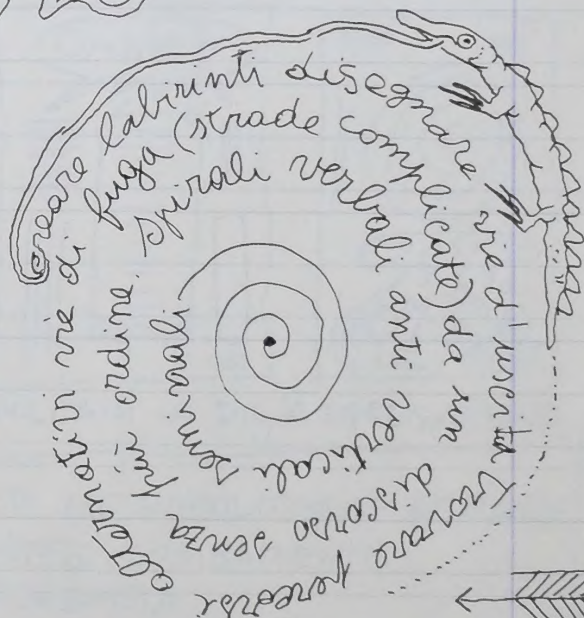 Creare labirinti disegnare vie d'uscita trovare percorsi alternativi vie di fuga (strade complicate) da un discorso senza più ordine. Spirali verbali anti verticali semivocali